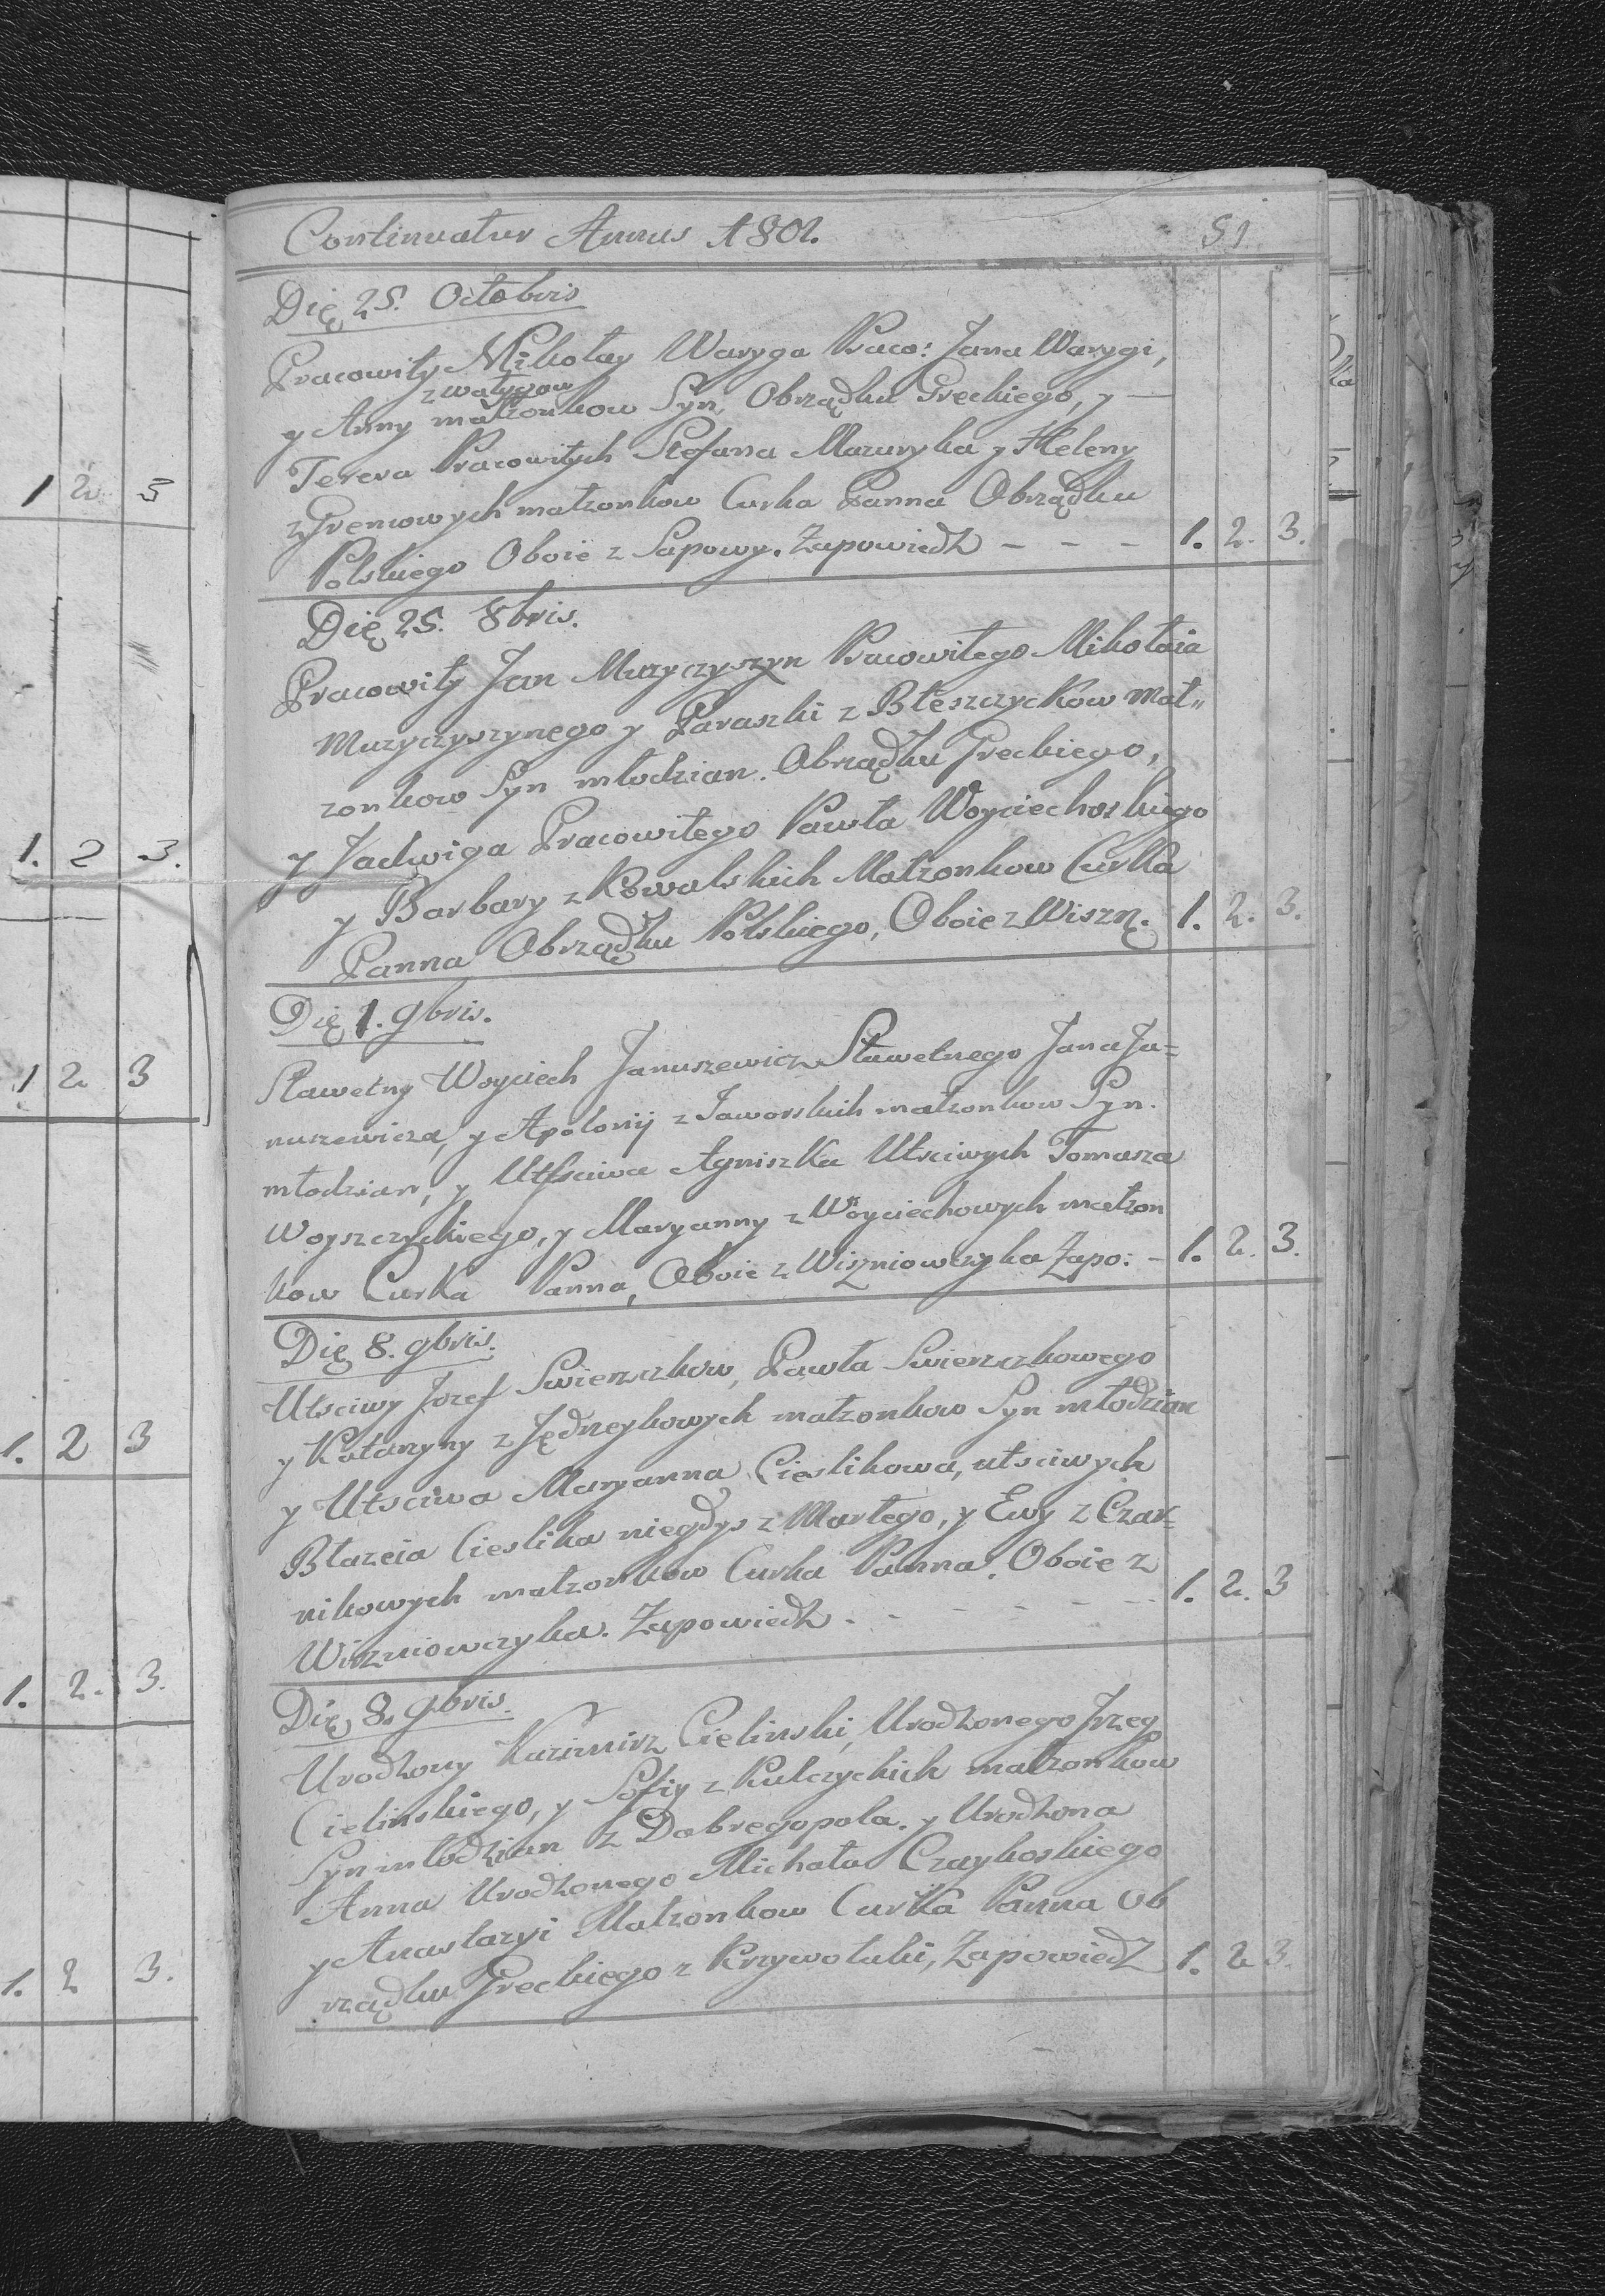 Continuatur Annus 1801. 51
Dię 25. Octobris
Pracowity Mikołay Waryga Praco: Jana Warygi,
z watyzow
y Anny małzonkow Syn, Obrządku Greckiego, y —
Teresa Pracowitych Stefana Mazuryka y Heleny
z Gremowych małzonkow Curka Panna Obrządku
Polskiego Oboie z Sapowy. Zapowiedz - - - 1. 2. 3.
Dię 25. 8bris.
Pracowity Jan Muzyczyszyn Pracowitego Mikołaia
Muzyczyszynego y Paraszki z Błeszczycków Mał„
zonkow Syn młodzian. Obrządku Greckiego,
y Jadwiga Pracowitego Pawła Woyciechoskiego
y Barbary z Kowalskich Małzonkow Curka
Panna Obrządku Polskiego, Oboie z Wiszn. 1. 2. 3.
Dię 1. 9bris.
Sławetny Woyciech Januszewicz Sławetnego Jana Ja=
nuszewicza, y Apolonij z Jaworskich małzonkow Syn.
młodzian, y Utsciwa Agniszka Utsciwych Tomasza
Woyszczyckiego, y Maryanny z Woyciechowych małzon
kow Curka Panna, Oboie z Wiszniowczyka Zapo: - 1. 2. 3.
Dię 8. 9bris.
Utsciwy Jozef Swierszkow, Pawła Swierszkowego
y Katarzyny z Jędrzeykowych małzonkow Syn młodzian
y Utsciwa Maryanna Cieslikowa, utsciwych
Błazeia Cieslika niegdys z Marłego, y Ewy z Czar=
nikowych małzonkow Curka Panna. Oboie z
Wiszniowczyka. Zapowiedz - - - - - - 1. 2. 3
Dię 8. 9bris.
Urodzony Kazimirz Cielinski, Urodzonego Jrzeg
Cielinskiego, y Sofiy z Kulczyckich małzonkow
Syn młodzian z Dobregopola. y Urodzona
Anna Urodzonego Michała Czaykoskiego
y Anastazyi Małzonkow Curka Panna Ob
rządku Greckiego z Krzywołuki, Zapowiedz 1. 2 3.
1 2 3
1. 2 3.
1 2 3
1. 2 3
1. 2. 3.
1. 2 3.